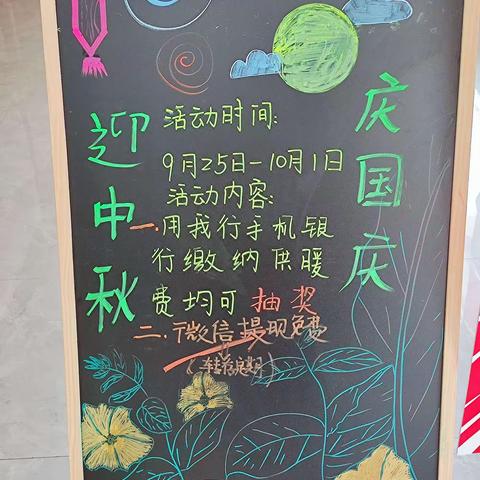 迎中秋
庆国庆
活动时间:
9月25日-10月1日
活动内容:
一.用我行手机银
行缴纳供暖
费均可抽奖
二.微信提现免费
(转存定期)